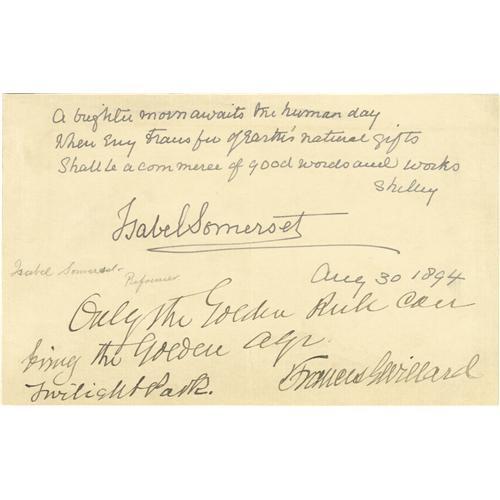 A brighter morn awaits the human day
When every transfer of Earth's natural gifts
Shall be a commerce of good words and works
Shelley
Isabel Somerset
Isabel Somerset -
Reformer
Aug 30 1894
Only the Golden Rule can
bring the Golden Age.
Twilight Park.
Frances E. Willard